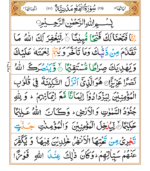 سُورَةُ الْفَتْحِ مَدَنِيَّةٌ
بِسْمِ اللهِ الرَّحْمٰنِ الرَّحِيْمِ
اِنَّا فَتَحْنَا لَكَ فَتْحًا مُّبِيْنًا لِّيَغْفِرَ لَكَ اللهُ مَا
تَقَدَّمَ مِنْ ذَنْۢبِكَ وَمَا تَاَخَّرَ وَيُتِمَّ نِعْمَتَهٗ عَلَيْكَ
وَيَهْدِيَكَ صِرَاطًا مُّسْتَقِيْمًا وَّيَنْصُرَكَ اللهُ
نَصْرًا عَزِيْزًا هُوَ الَّذِيْٓ اَنْزَلَ السَّكِيْنَةَ فِيْ قُلُوْبِ
الْمُؤْمِنِيْنَ لِيَزْدَادُوْٓا اِيْمَانًا مَّعَ اِيْمَانِهِمْ وَلِلّٰهِ
جُنُوْدُ السَّمٰوٰتِ وَالْاَرْضِ وَكَانَ اللهُ عَلِيْمًا
حَكِيْمًا لِّيُدْخِلَ الْمُؤْمِنِيْنَ وَالْمُؤْمِنٰتِ جَنّٰتٍ
تَجْرِيْ مِنْ تَحْتِهَا الْاَنْهٰرُ خٰلِدِيْنَ فِيْهَا وَيُكَفِّرَ
عَنْهُمْ سَيِّاٰتِهِمْ وَكَانَ ذٰلِكَ عِنْدَ اللهِ فَوْزًا